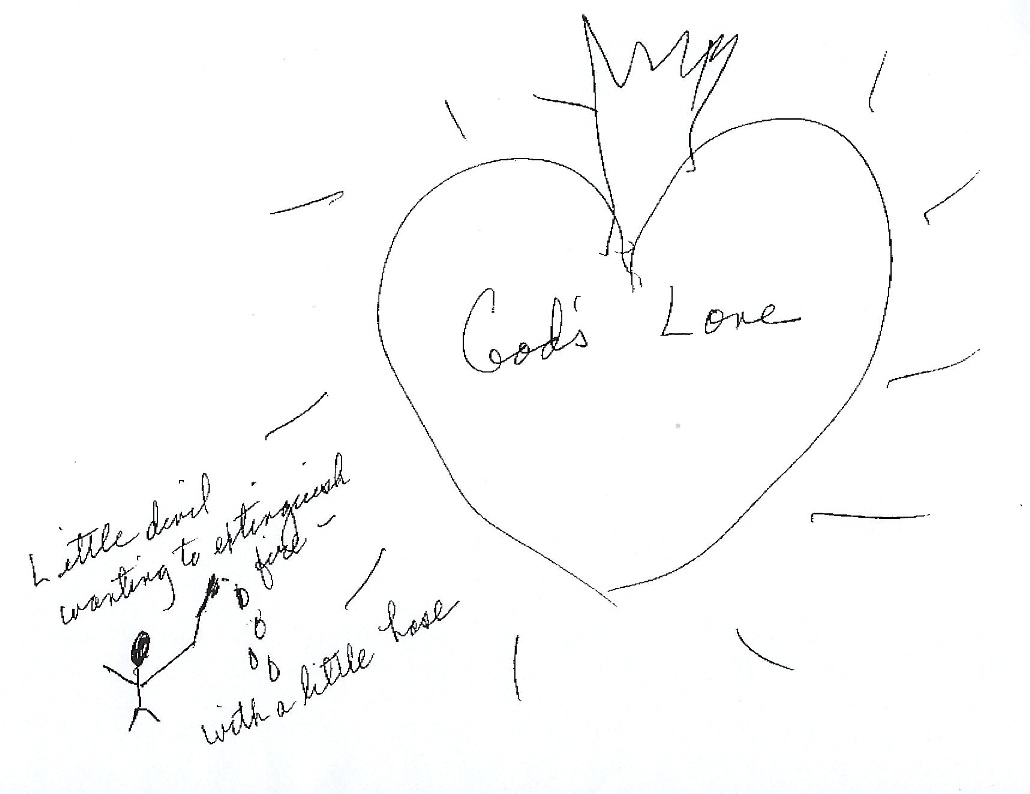 God's Love
Little devil
wanting to extinguish
fire -
with a little hose